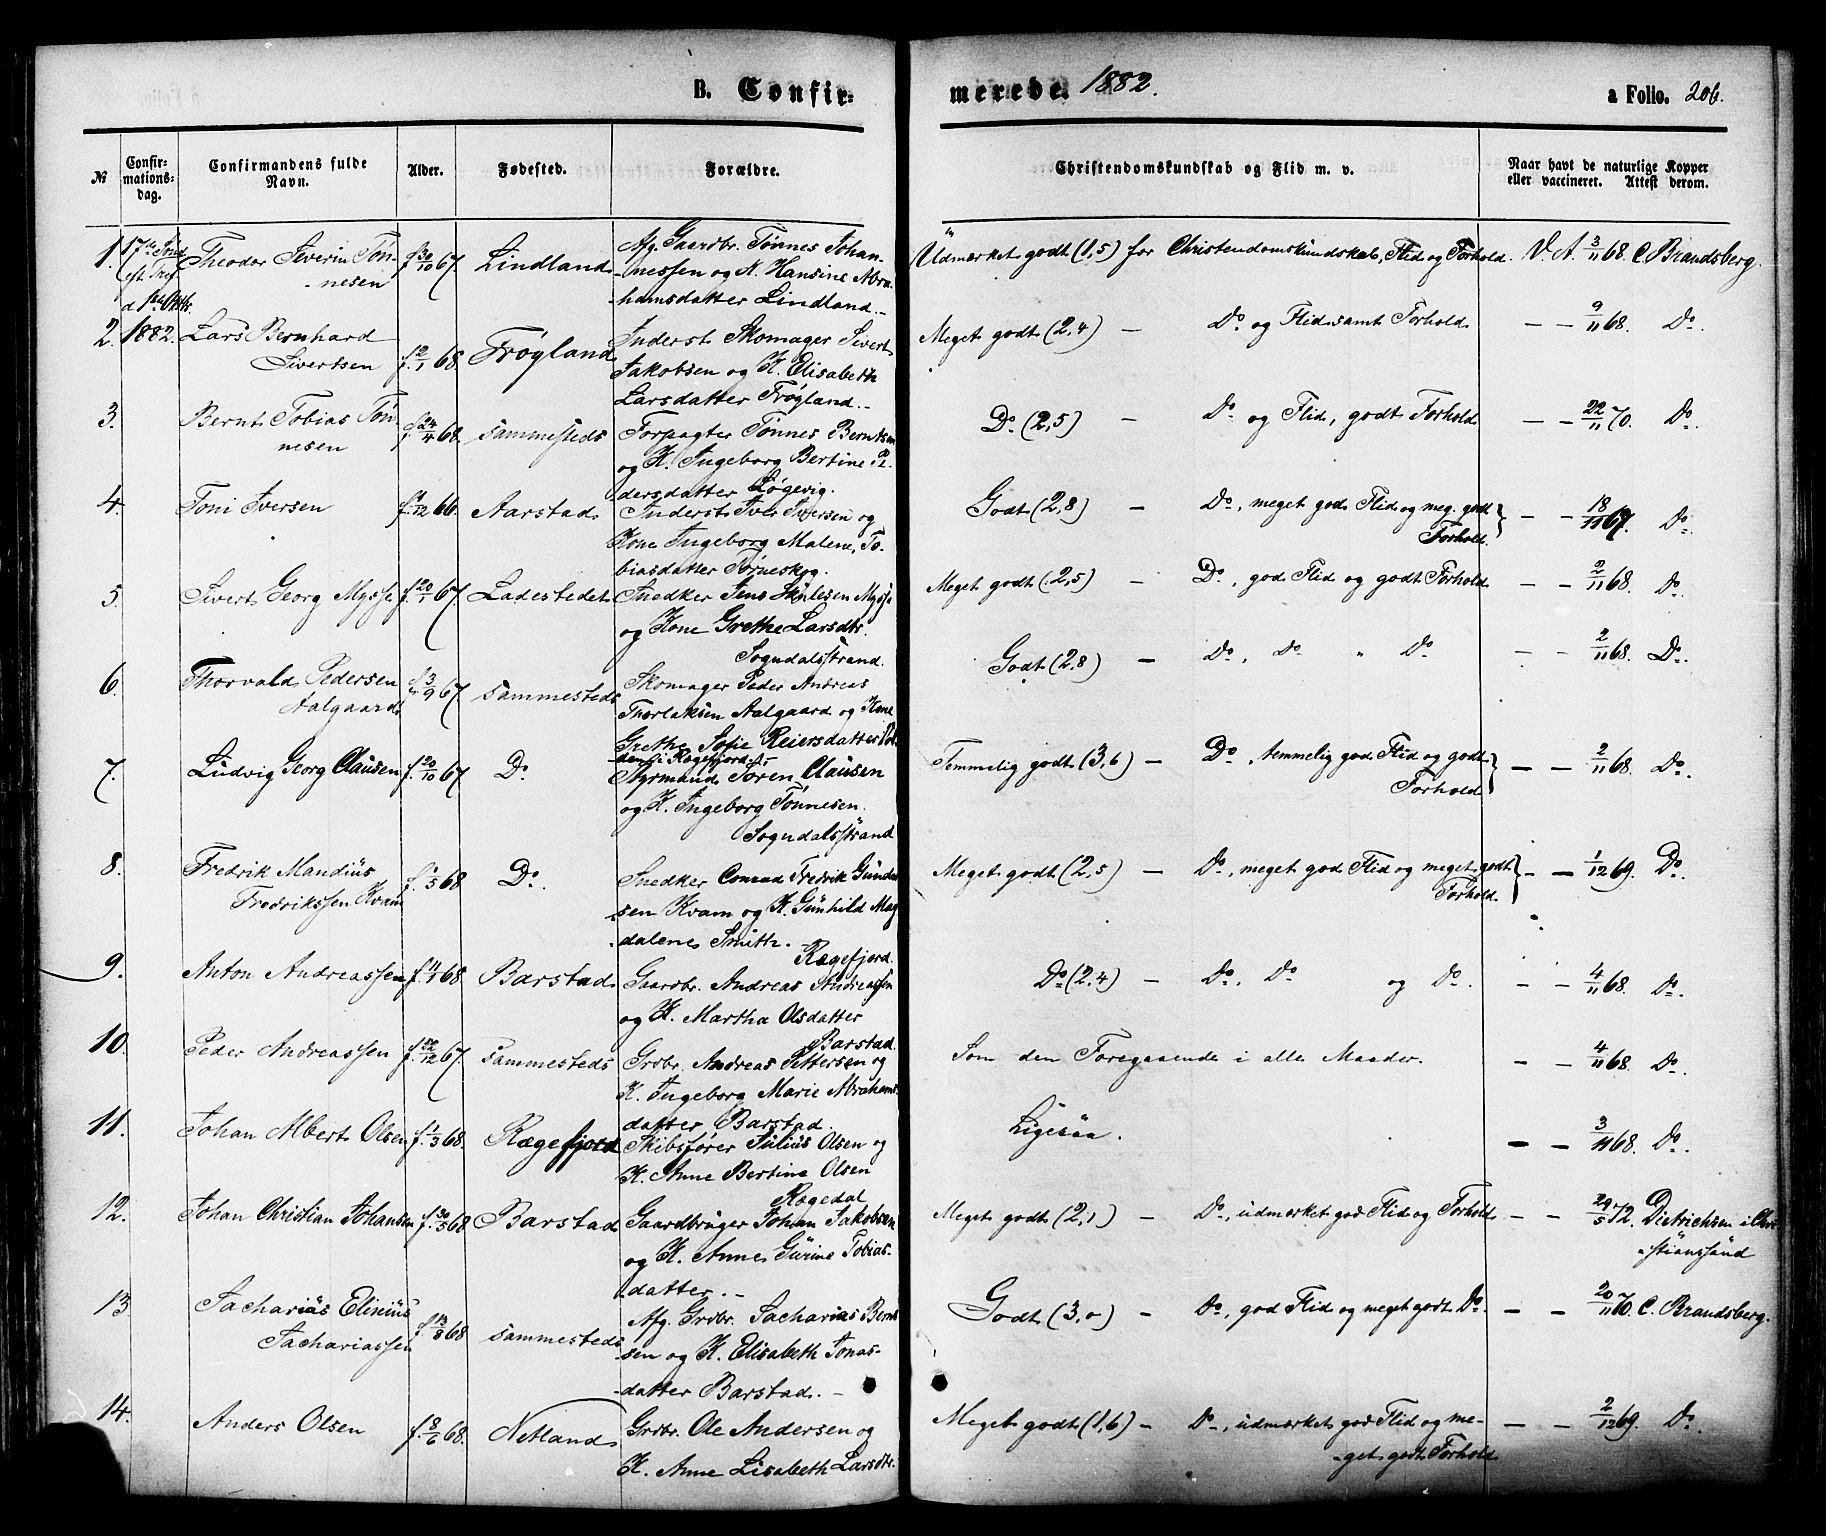 B. Confir=
merede. 1882.
a Folio. 206.
№
Confir-
mations-
dag.
Confirmandens fulde
Navn.
Alder.
Fødested.
Forældre.
Christendomskundskab og Flid m. v.
Naar havt de naturlige Kopper
eller vaccineret. Attest derom.
1. 17de Sønd. Theodor Severin Tøn- f. 30/10 67. Lindland Afg. Gaardbr. Tønnes Johan- Udmærket godt (1,5) for Christendomskundskab, Flid og Forhold. V. A. 3/11 68. C. Brandsberg.
eft. Tref. -nesen -nessen og K. Hansine Abra-
d 1ste Oktb. -hamsdatter Lindland.-
2. 1882. Lars Bernhard f. 2/1 68. Frøgland Inderst Skomager Sivert Meget godt (2,4) — Do og Flid samt Forhold — — 9/11 68. Do.
Sivertsen Jakobsen og K. Elisabeth
Larsdatter Frøgland.-
3. Bernt Tobias Tøn- f. 24/4 68. sammesteds Forpagter Tønnes Berntsen Do (2,5) — Do og Flid, godt Forhold — — 22/11 70. Do.
nesen og K. Ingeborg Bertine Pe-
dersdatter Løgevig.
4. Toni Iversen 12 66. Aarstad Inderst Iver Iversen og Godt (2,8) — Do, meget god Flid og meg. godt — — 18/11 67. Do.
Kone Ingeborg Malene To- Forhold.
biasdatter Tørneskog.
5. Sivert Georg Mysse f. 20/1 67. Ladestedet Snedker Jens Skulesen Mysse Meget godt (2,5) — Do, god Flid og godt Forhold — — 2/11 68. Do.
og Kone Grethe Larsdtr.
Sogndalsstrand.
6. Thorvald Pedersen f. 3/9 67. sammesteds Skomager Peder Andreas Godt (2,8) — Do, Do " Do — — 2/11 68. Do.
Aalgaard Thorlaksen Aalgaard og Kone
Grethe Sofie Reiersdatter
i Rægefjord.
7. Ludvig Georg Clausen f. 20/10 67. Do Styrmand Søren Clausen Temmelig godt (3,6) — Do, temmelig god Flid og godt — — 2/11 68. Do.
og K. Ingeborg Tønnesen. Forhold
Sogndalsstrand
8. Fredrik Mandius f. 1/5 68 Do. Snedker Conrad Fredrik Gunder- Meget godt (2,5) — Do, meget god Flid og meget godt — — 1/12 69. Do.
Fredrikssen Kvam -sen Kvam og K. Gunhild Mag- Forhold.
-dalene Smith.-
Rægefjord.
9. Anton Andreassen f. 4/1 68. Barstad Gaardbr. Andreas Andreassen Do (2,4) — Do, Do og Do. — — 4/11 68. Do.
og K. Martha Olsdatter
Barstad.
10. Peder Andreassen f. 22/12 67. sammesteds Grdbr. Andreas Pettersen og Som den Foregaaende i alle Maader. — — 4/11 68. Do.
K. Ingeborg Marie Abrahams-
datter Barstad.
11. Johan Albert Olsen f. 1/3 68. Rægefjord Skibsfører Julius Olsen og Ligesaa. — — 3/11 68. Do.
K. Anne Bertine Olsen
Rægedal
12. Johan Christian Johansen f. 30/5 68. Barstad Gaardbruger Johan Jakobsen Meget godt (2,1) — Do, udmærket god Flid og Forhold — — 29/5 72. Dietrichsen i Chri-
og K. Anne Gurine Tobias- -stianssund
datter.-
13 Sacharias Elinius f. 12/8 68. sammesteds Afg. Grdbr. Sacharias Bernt- Godt (3,0) — Do, god Flid og meget godt Do. — — 20/11 70. C. Brandsberg.
Sachariassen sen og K. Elisabeth Jonas-
-datter Barstad.-
14. Anders Olsen f. 8/6 68. Netland Grdbr. Ole Andersen og Meget godt (1,6) — Do, udmærket god Flid og me- — — 2/12 69. Do.
K. Anne Lisabeth Larsdtr. -get godt Forhold